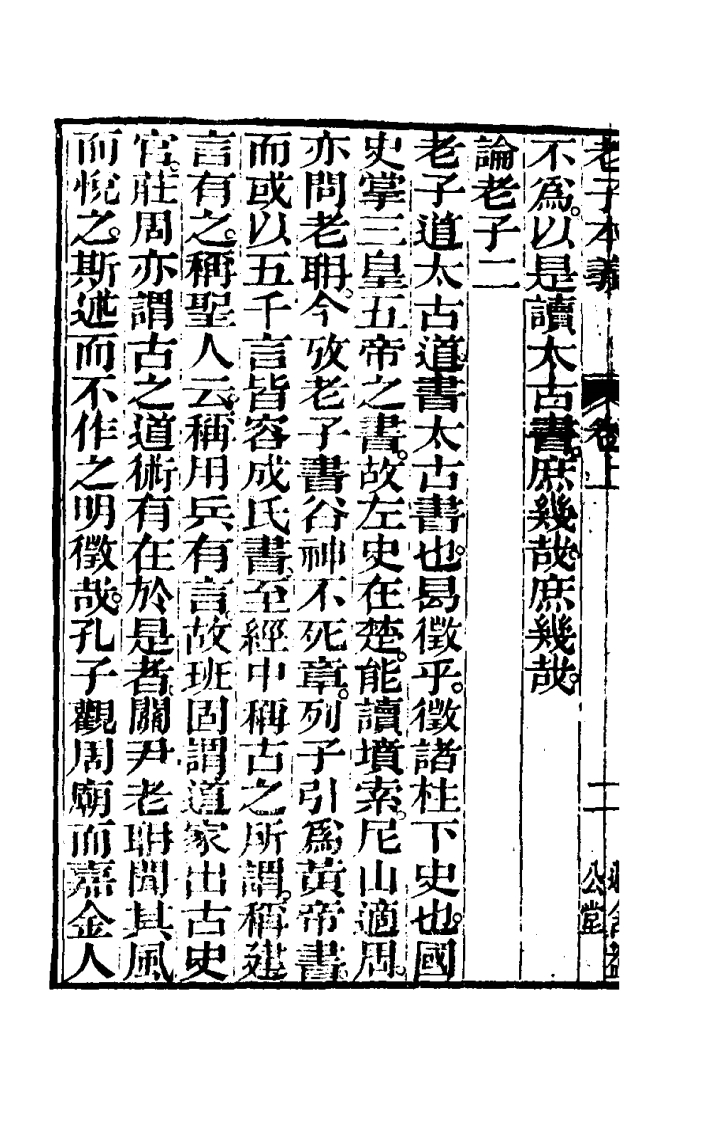 老子本義 卷上 二
公堂
不爲。以是讀太古書。庶幾哉。庶幾哉。
論老子二
老子道太古道。書太古書也。曷徵乎。徵諸柱下史也。國
史掌三皇五帝之書。故左史在楚。能讀墳索。尼山適周。
亦問老聃。今攷老子書谷神不死章。列子引爲黃帝書。
而或以五千言皆容成氏書。至經中稱古之所謂。稱建
言有之。稱聖人云。稱用兵有言。故班固謂道家出古史
官。莊周亦謂古之道術有在於是者。關尹老聃聞其風
而悅之。斯述而不作之明徵哉。孔子觀周廟而嘉金人